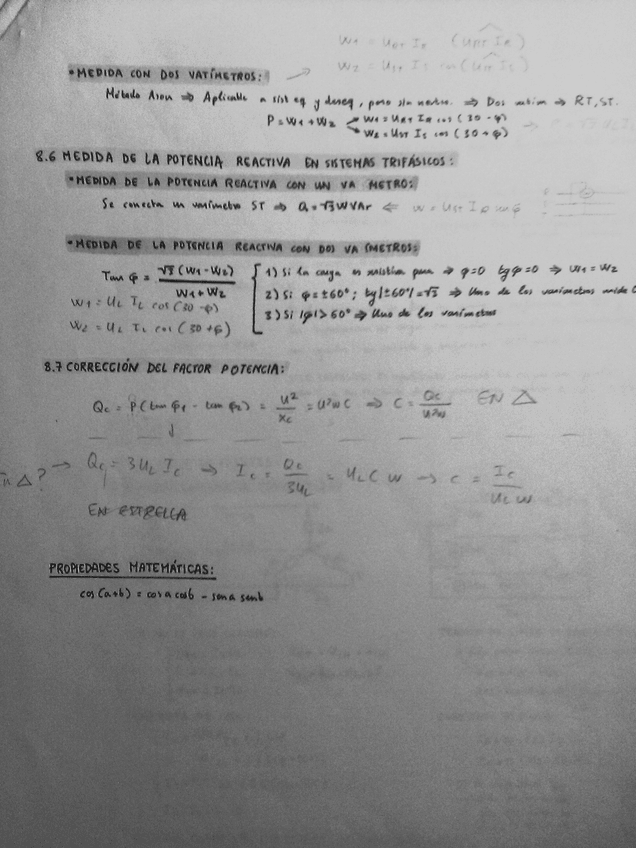 W1 = URT IR (URT IR)
W2 = UST IS cos(UST IS)
• MEDIDA CON DOS VATÍMETROS:
Método Aron ⇒ Aplicable a sist eq y deseq, pero sin neutro. ⇒ Dos ⇒ RT, ST.
P = W1 + W2
W1 = URT IR cos (30 - φ)
W2 = UST IS cos (30 + φ)
8.6 MEDIDA DE LA POTENCIA REACTIVA EN SISTEMAS TRIFÁSICOS:
• MEDIDA DE LA POTENCIA REACTIVA CON UN VA METRO:
Se conecta un varímetro ST ⇒ Q = √3 W VAr ⇐ W = UST IR cos φ
• MEDIDA DE LA POTENCIA REACTIVA CON DOS VA ÍMETROS:
Tan φ = √3 (W1 - W2) / W1 + W2
1) Si la carga es resistiva pura ⇒ φ=0 tg φ=0 ⇒ W1 = W2
2) Si φ = ±60°; tg|±60°| = √3 ⇒ Uno de los varímetros mide
3) Si |φ| > 60° ⇒ Uno de los varímetros
W1 = UL IL cos (30 - φ)
W2 = UL IL cos (30 + φ)
8.7 CORRECCIÓN DEL FACTOR POTENCIA:
Qc = P(tan φ1 - tan φ2) = U² / Xc = U²ωC ⇒ C = Qc / U²ω EN △
△? → Qc = 3UL Ic → Ic = Qc / 3UL = UL C ω → C = Ic / UL ω
EN ESTRELLA
PROPIEDADES MATEMÁTICAS:
cos (a+b) = cos a cos b - sen a sen b